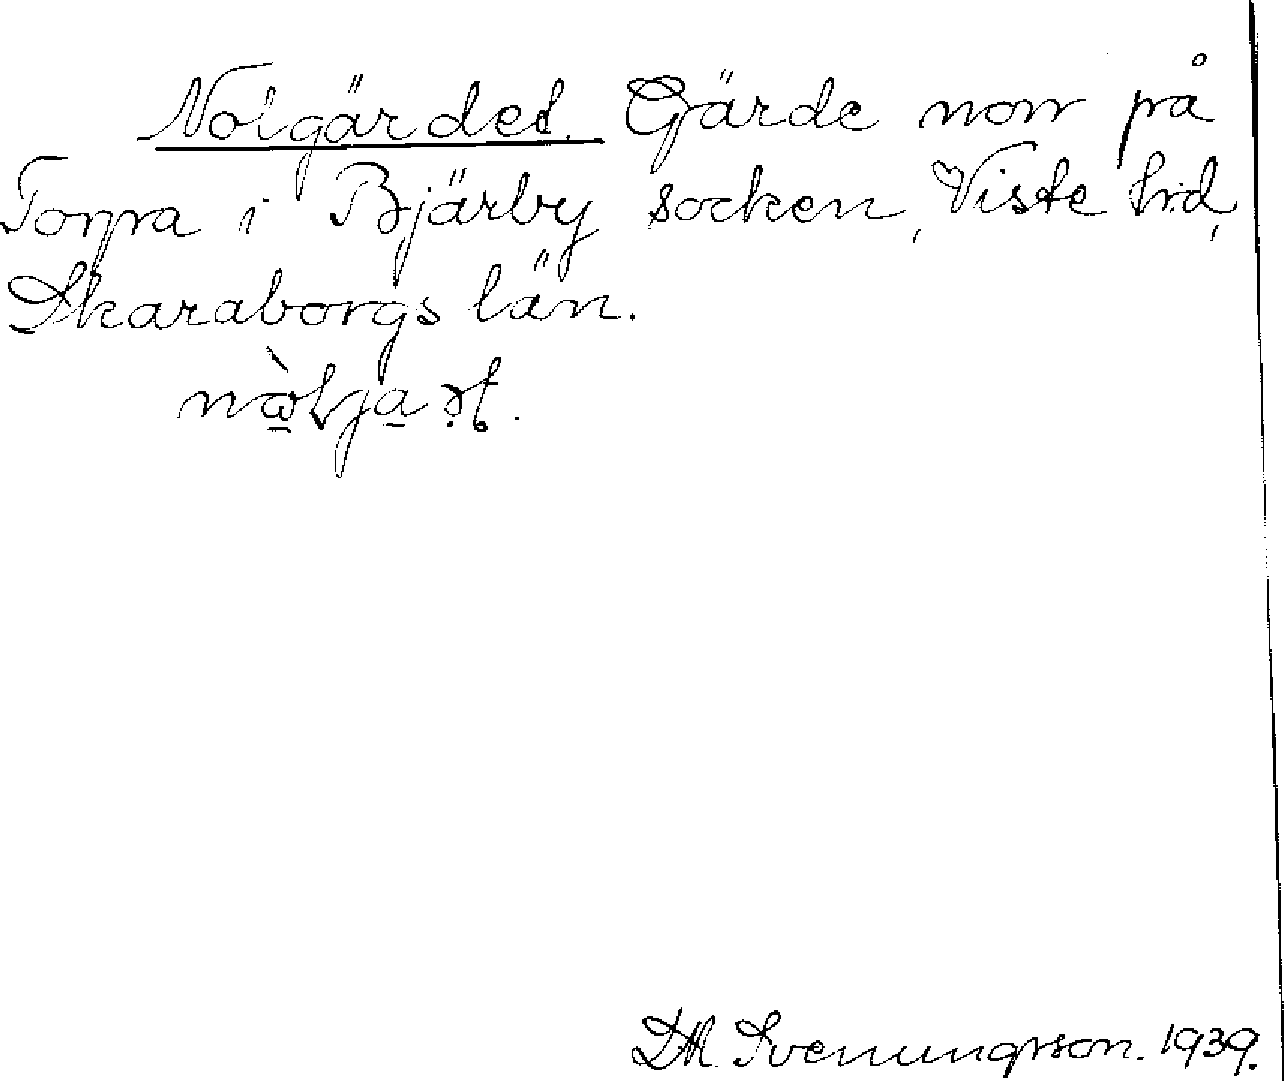 Nolgärdet. Gärde norr på
Torpa i Bjärby socken, Viste hrd,
Skaraborgs län.
Svenungsson. 1939.